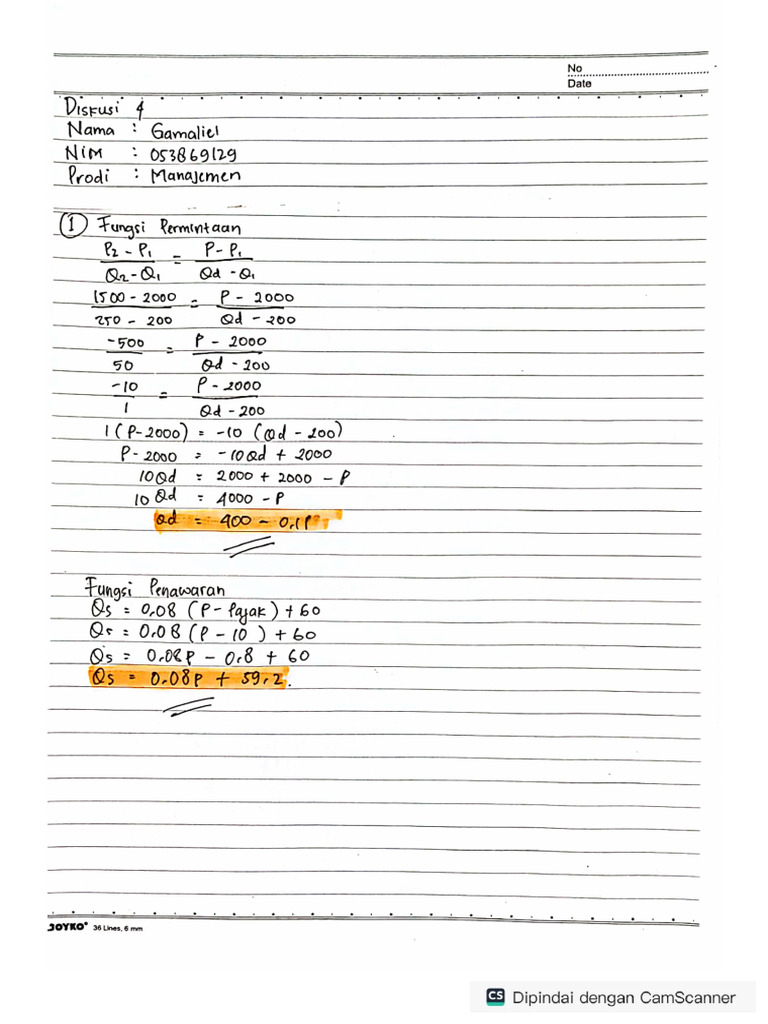 No
Date
Diskusi 4
Nama : Gamaliel
NIM : 053869129
Prodi : Manajemen
① Fungsi Permintaan
P₂ - P₁ / Q₂ - Q₁ = P - P₁ / Qd - Q₁
1500 - 2000 / 250 - 200 = P - 2000 / Qd - 200
-500 / 50 = P - 2000 / Qd - 200
-10 / 1 = P - 2000 / Qd - 200
1 (P - 2000) = -10 (Qd - 200)
P - 2000 = -10Qd + 2000
10Qd = 2000 + 2000 - P
10 Qd = 4000 - P
Qd = 400 - 0,1P
Fungsi Penawaran
Qs = 0,08 (P - Pajak) + 60
Qs = 0,08 (P - 10) + 60
Qs = 0,08P - 0,8 + 60
Qs = 0,08P + 59,2.
JOYKO® 36 Lines, 6 mm
CS Dipindai dengan CamScanner